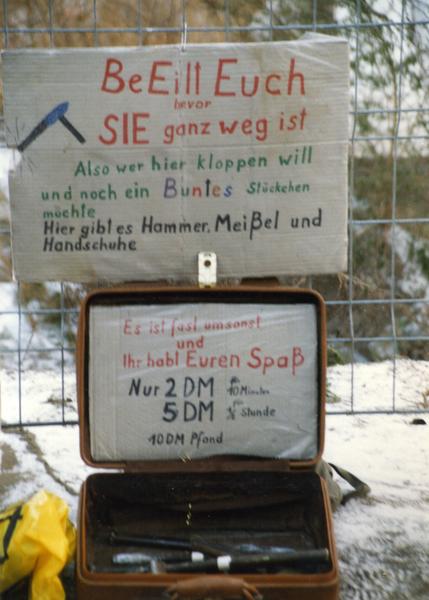 BeEilt Euch
bevor
SIE ganz weg ist
Also wer hier kloppen will
und noch ein Buntes Stückchen
möchte
Hier gibt es Hammer, Meißel und
Handschuhe
Es ist fast umsonst
und
Ihr habt Euren Spaß
Nur 2 DM für 10 Minuten
5 DM für ½ Stunde
10 DM Pfand